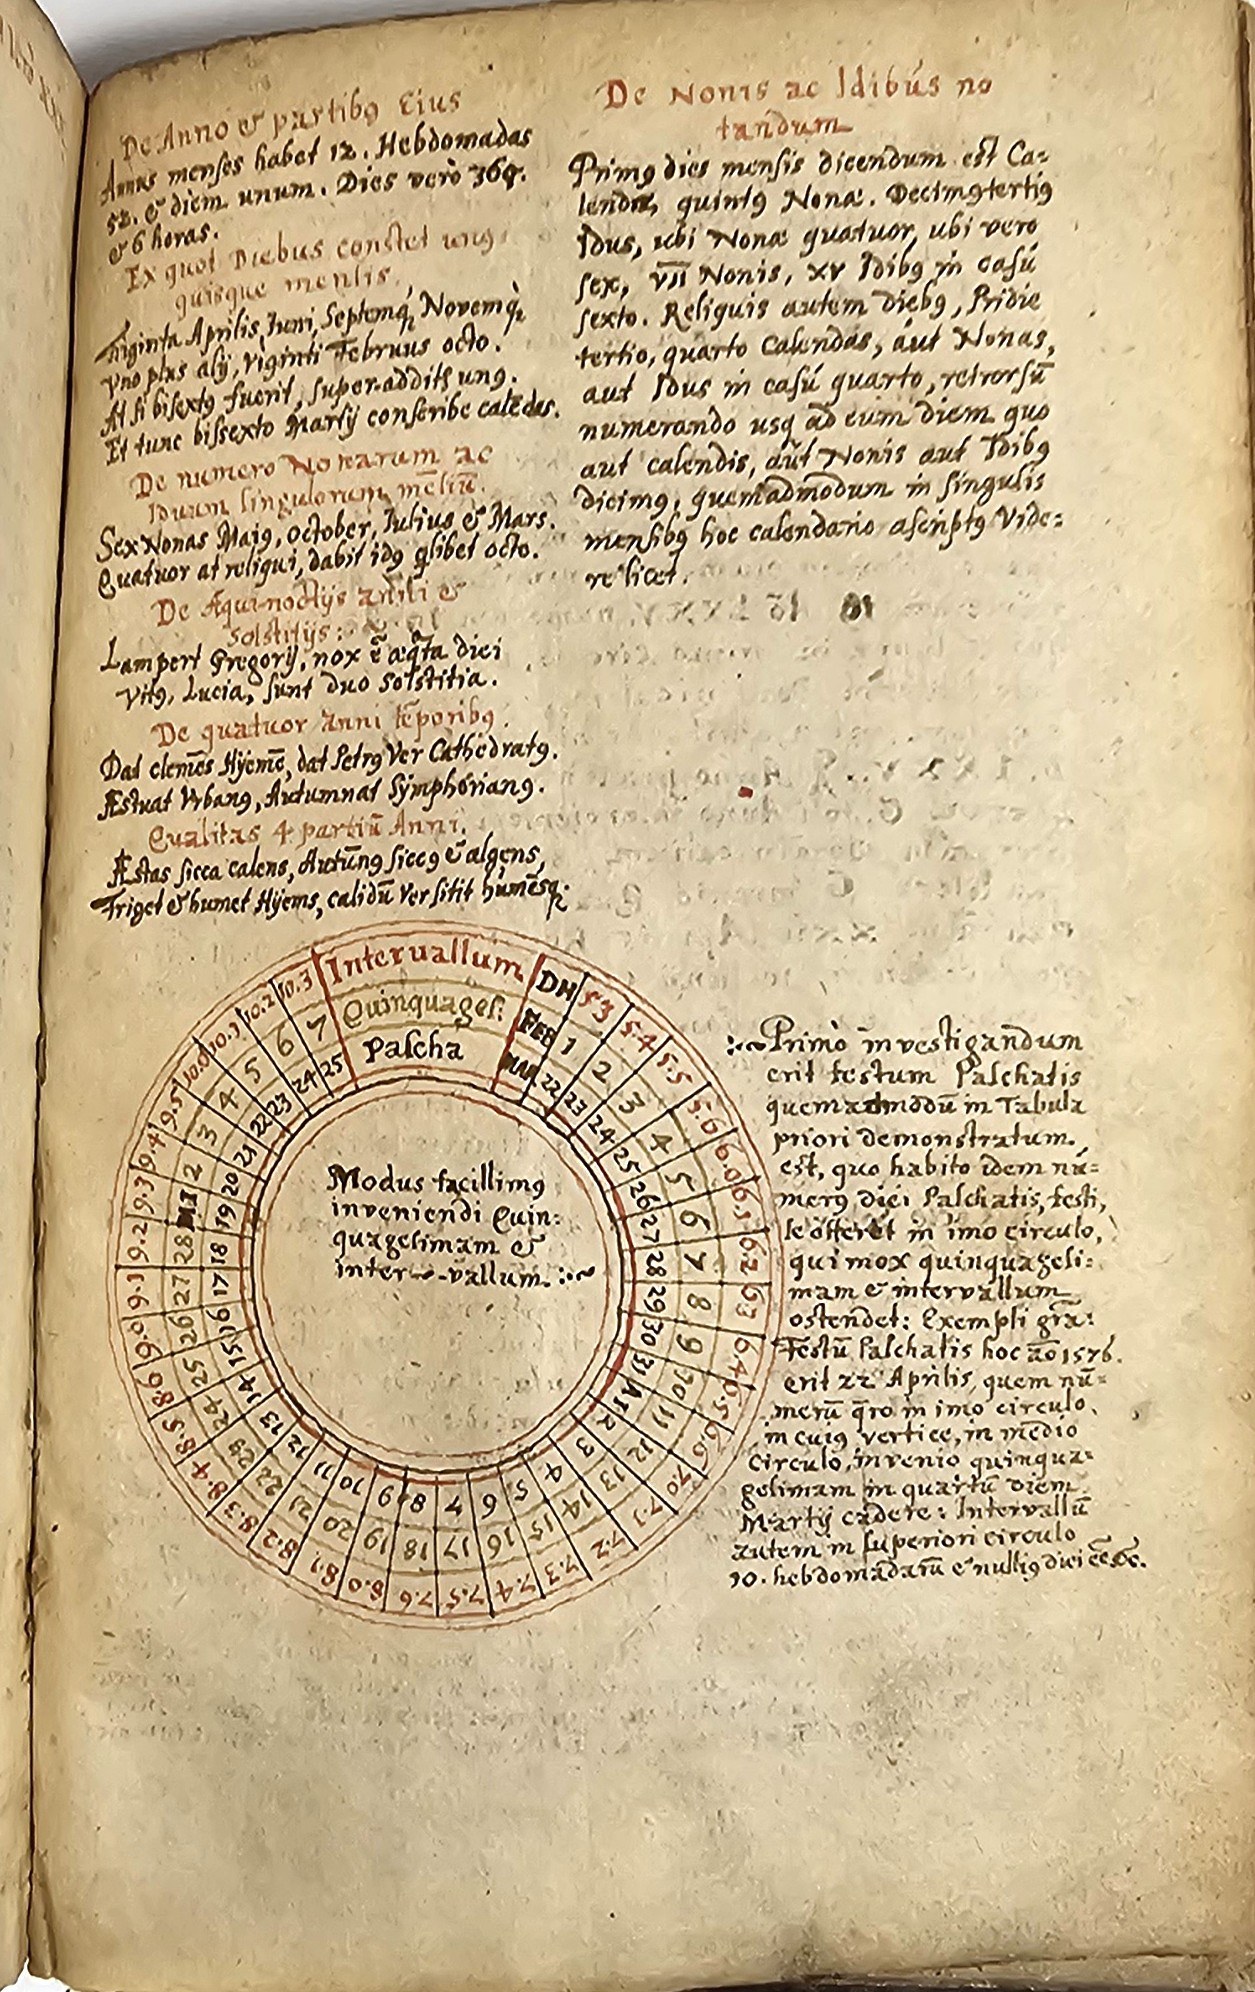 De Anno & partibꝰ Eius
Annus menses habet 12. Hebdomadas
52. & diem unum. Dies verò 365.
& 6 horas.
Ex quot Diebus constet unꝰ
quisque mensis.
Triginta Aprilis, Iuni, Septemq́, Novemq́
Vno plus alij, viginti Februus octo.
At si bisextꝰ fuerit, super-additꝭ unꝰ.
Et tunc bissexto Martij conscribe calēdas.
De numero Nonarum ac
Iduum singulorum mēsiū.
Sex Nonas Majꝰ, October, Iulius & Mars.
Quatuor at reliqui, dabit idꝰ q̃libet octo.
De Æquinoctijs anni &
Solstitijs:
Lampert Gregorij, nox ē æq̃ta diei
Vitꝰ, Lucia, sunt duo Solstitia.
De quatuor anni tēporibꝰ.
Dat clemēs Hyemē, dat Petrꝰ Ver Cathedratꝰ.
Æstuat Vrbanꝰ, Autumnat Symphorianꝰ.
Qualitas 4 partiū Anni.
Æstas sicca calens, Autūnꝰ siccꝰ & algens,
Friget & humet Hyems, calidū Ver sitit humēsq́.
De Nonis ac Idibus no
tandum
Primꝰ dies mensis dicendum est Ca-
lendæ, quintꝰ Nonæ. Decimꝰtertiꝰ
Idus, ubi Nonæ quatuor, ubi vero
sex, VII Nonis, XV Idibꝰ in casu
sexto. Reliquis autem diebꝰ, Pridie
tertio, quarto Calendas, aut Nonas,
aut Idus in casu quarto, retrorsū
numerando usq ad eum diem quo
aut calendis, aut Nonis aut Idibꝰ
dicimꝰ, quemadmodum in singulis
mensibꝰ hoc calendario ascriptꝰ Vide=
re licet.
Intervallum
DH 53 5.4 5.5 5.6 6.0 6.1 6.2 63 6.4 6.5 6.6 7.0 7.1 7.2 7.3 7.4 7.5 7.6 8.0 8.1 8.2 8.3 8.4 8.5 8.6 9.0 9.1 9.2 9.3 9.4 9.5 10.0 10.1 10.2 10.3
Quinquages:
FEB 1 2 3 4 5 6 7 8 9 10 11 12 13 14 15 16 17 18 19 20 21 22 23 24 25 26 27 28 2 3 4 5 6 7
Pascha
MAR 22 23 24 25 26 27 28 29 30 31 2 3 4 5 6 7 8 9 10 11 12 13 14 15 16 17 18 19 20 21 22 23 24 25
Modus facillimꝰ
inveniendi Quin=
quagesimam &
inter-vallum.
Primò investigandum
erit festum Paschatis
quemadmodū in Tabula
priori demonstratum
est, quo habito idem nu=
merꝰ diei Paschatis, festi,
se offeret in imo circulo,
qui mox quinquagesi=
mam & intervallum
ostendet: Exempli grã:
Festū Paschatis hoc ão 1576.
erit 22 Aprilis, quem nu=
merū q̃ro in imo circulo,
in cuiꝰ vertice, in medio
Circulo, invenio quinqua=
gesimam in quartū diem
Martij cadere: Intervallū
autem in superiori circulo
10. hebdomadarū & nulliꝰ diei